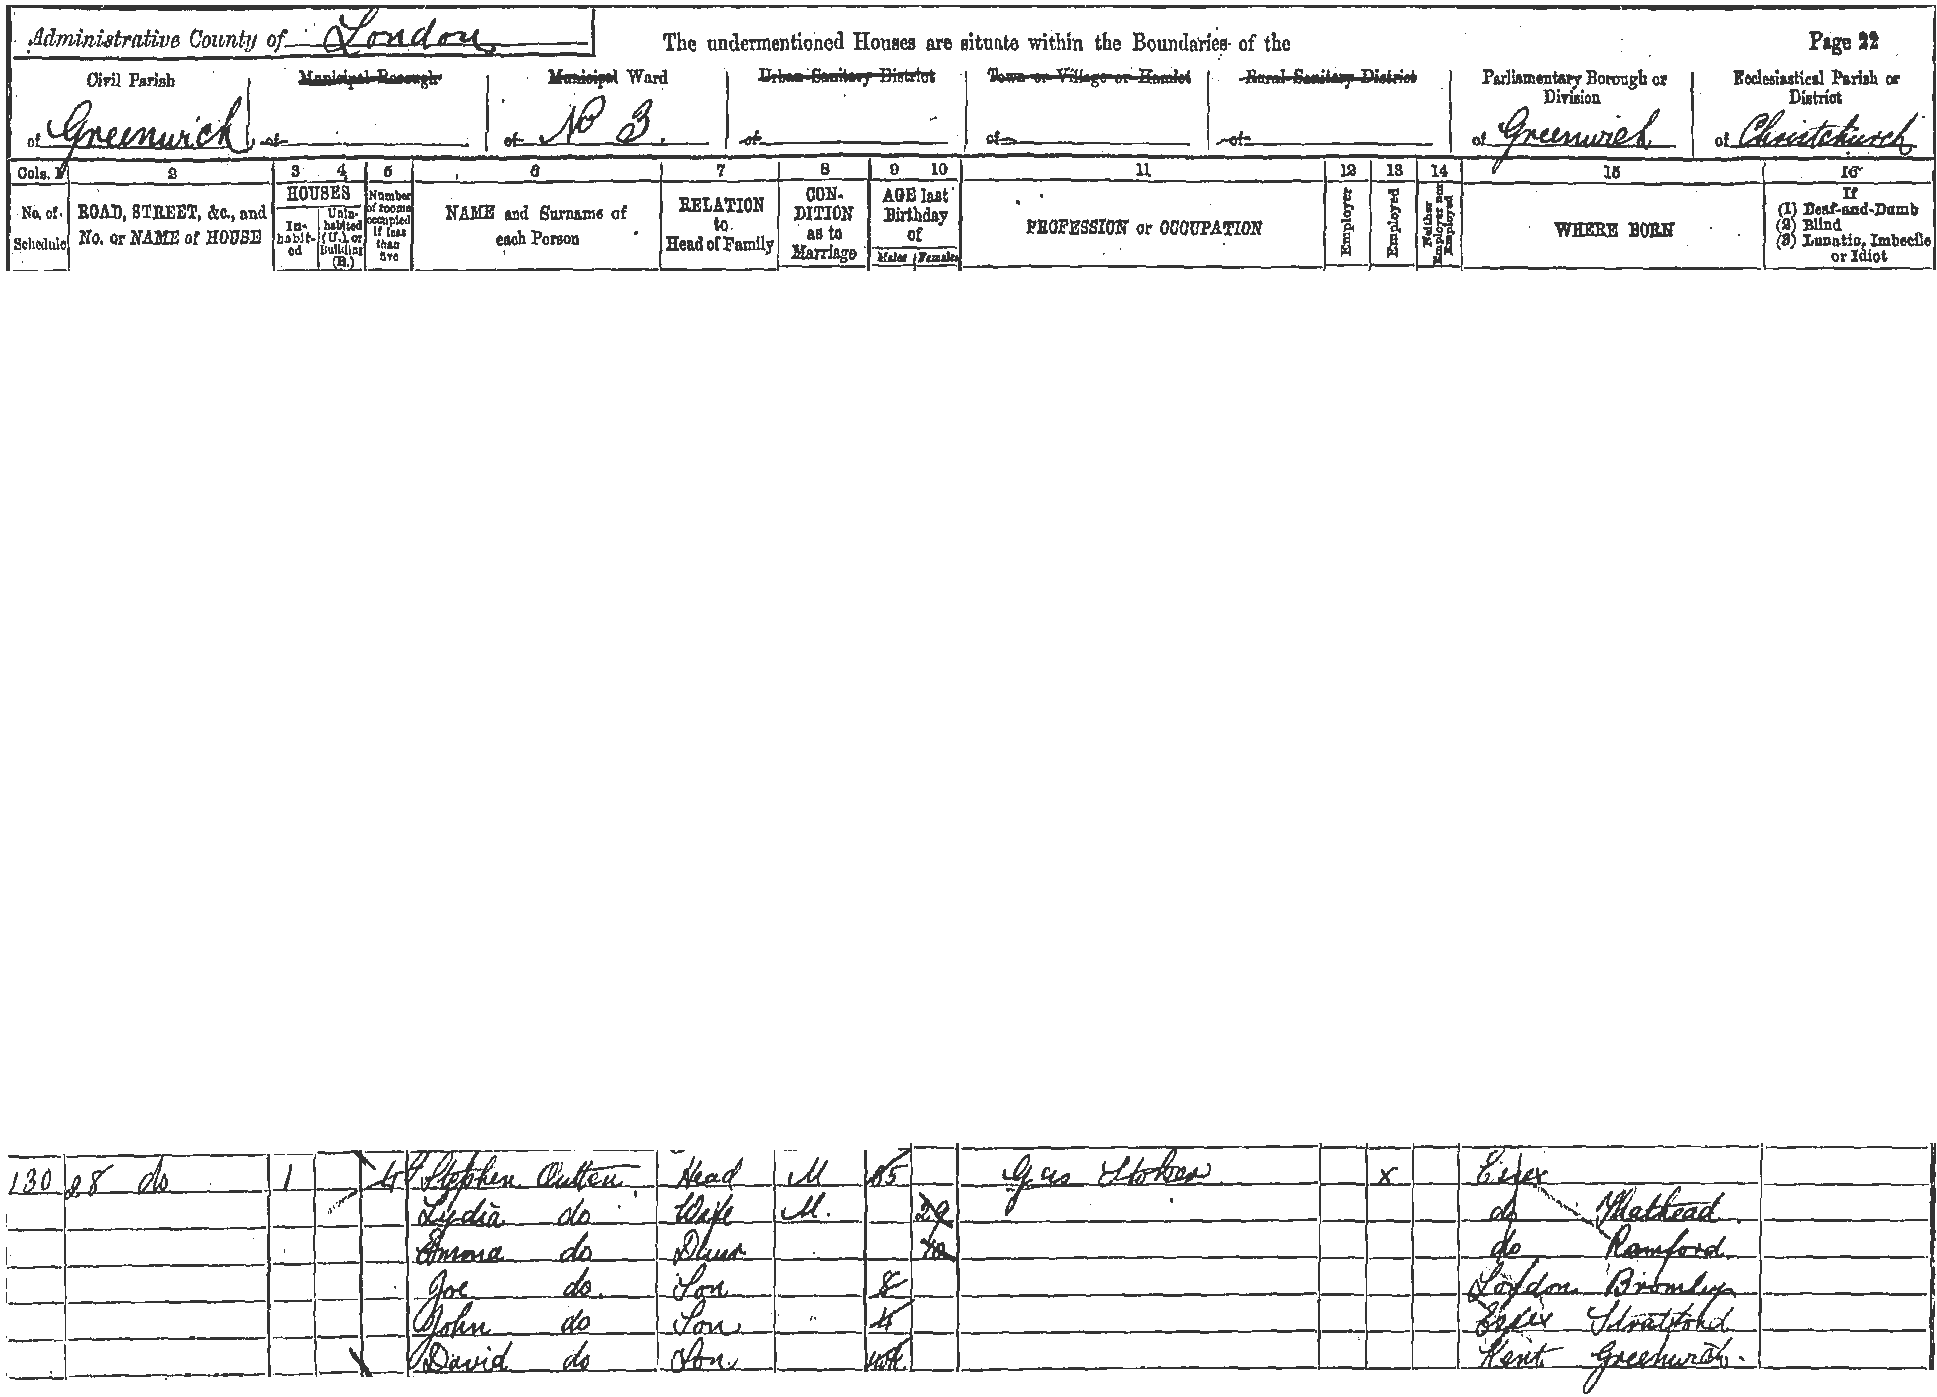 Administrative County of London
The undermentioned Houses are situate within the Boundaries of the
Page 22
Civil Parish
of Greenwich
Municipal Borough
of
Municipal Ward
of No 3.
Urban Sanitary District
of
Town or Village or Hamlet
of
Rural Sanitary District
of
Parliamentary Borough or
Division
of Greenwich
Ecclesiastical Parish or
District
of Christchurch
Cols. 1 2 3 4 5 6 7 8 9 10 11 12 13 14 15 16
No. of
Schedule
ROAD, STREET, &c., and
No. or NAME of HOUSE
HOUSES
In-
habit-
ed
Unin-
habited
(U.), or
Building
(B.)
Number
of rooms
occupied
if less
than
five
NAME and Surname of
each Person
RELATION
to
Head of Family
CON-
DITION
as to
Marriage
AGE last
Birthday
of
Males Females
PROFESSION or OCCUPATION
Employer
Employed
Neither
Employer nor
Employed
WHERE BORN
If
(1) Deaf-and-Dumb
(2) Blind
(3) Lunatic, Imbecile
or Idiot
130 28 do 1 4 Stephen Outten Head M Gas Stoker x Essex
Lydia do Wife M. 29 do
Emma do Daur do Romford
Joe do. Son 8 London Bromley
John do Son 4 Essex Stratford
David do Son Kent Greenwich.